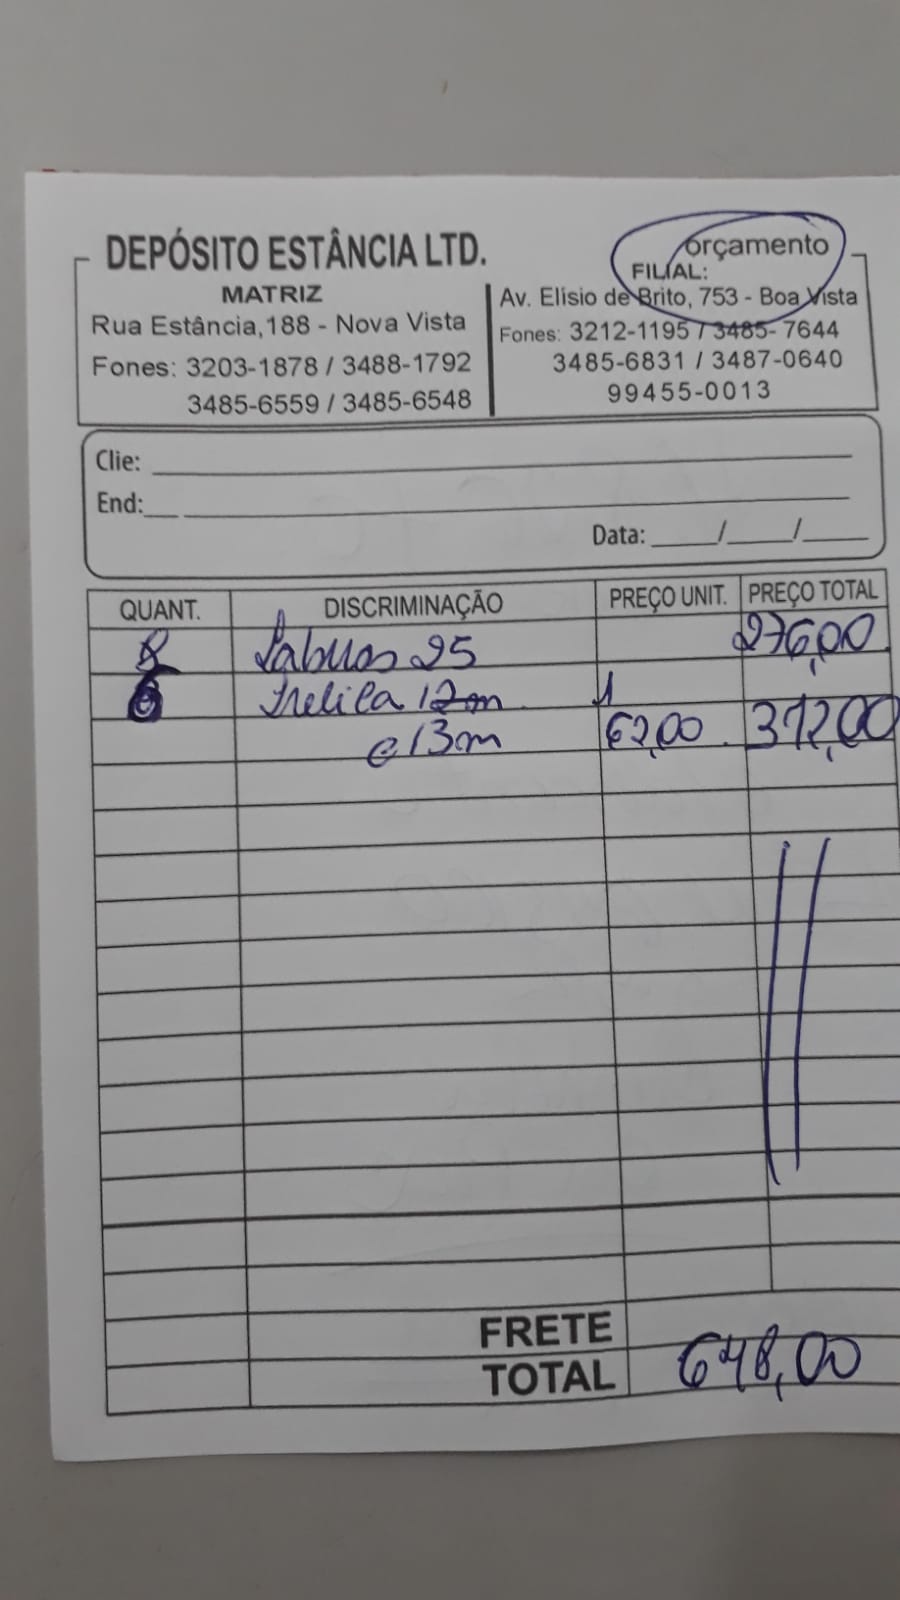 DEPÓSITO ESTÂNCIA LTD.
MATRIZ
Rua Estância,188 - Nova Vista
Fones: 3203-1878 / 3488-1792
3485-6559 / 3485-6548
orçamento
FILIAL:
Av. Elísio de Brito, 753 - Boa Vista
Fones: 3212-1195 / 3485-7644
3485-6831 / 3487-0640
99455-0013
Clie:
End:
Data: ___/___/___
QUANT. DISCRIMINAÇÃO PREÇO UNIT. PREÇO TOTAL
8 25 276,00
6 12m
13m 62,00 372,00
FRETE
TOTAL 648,00